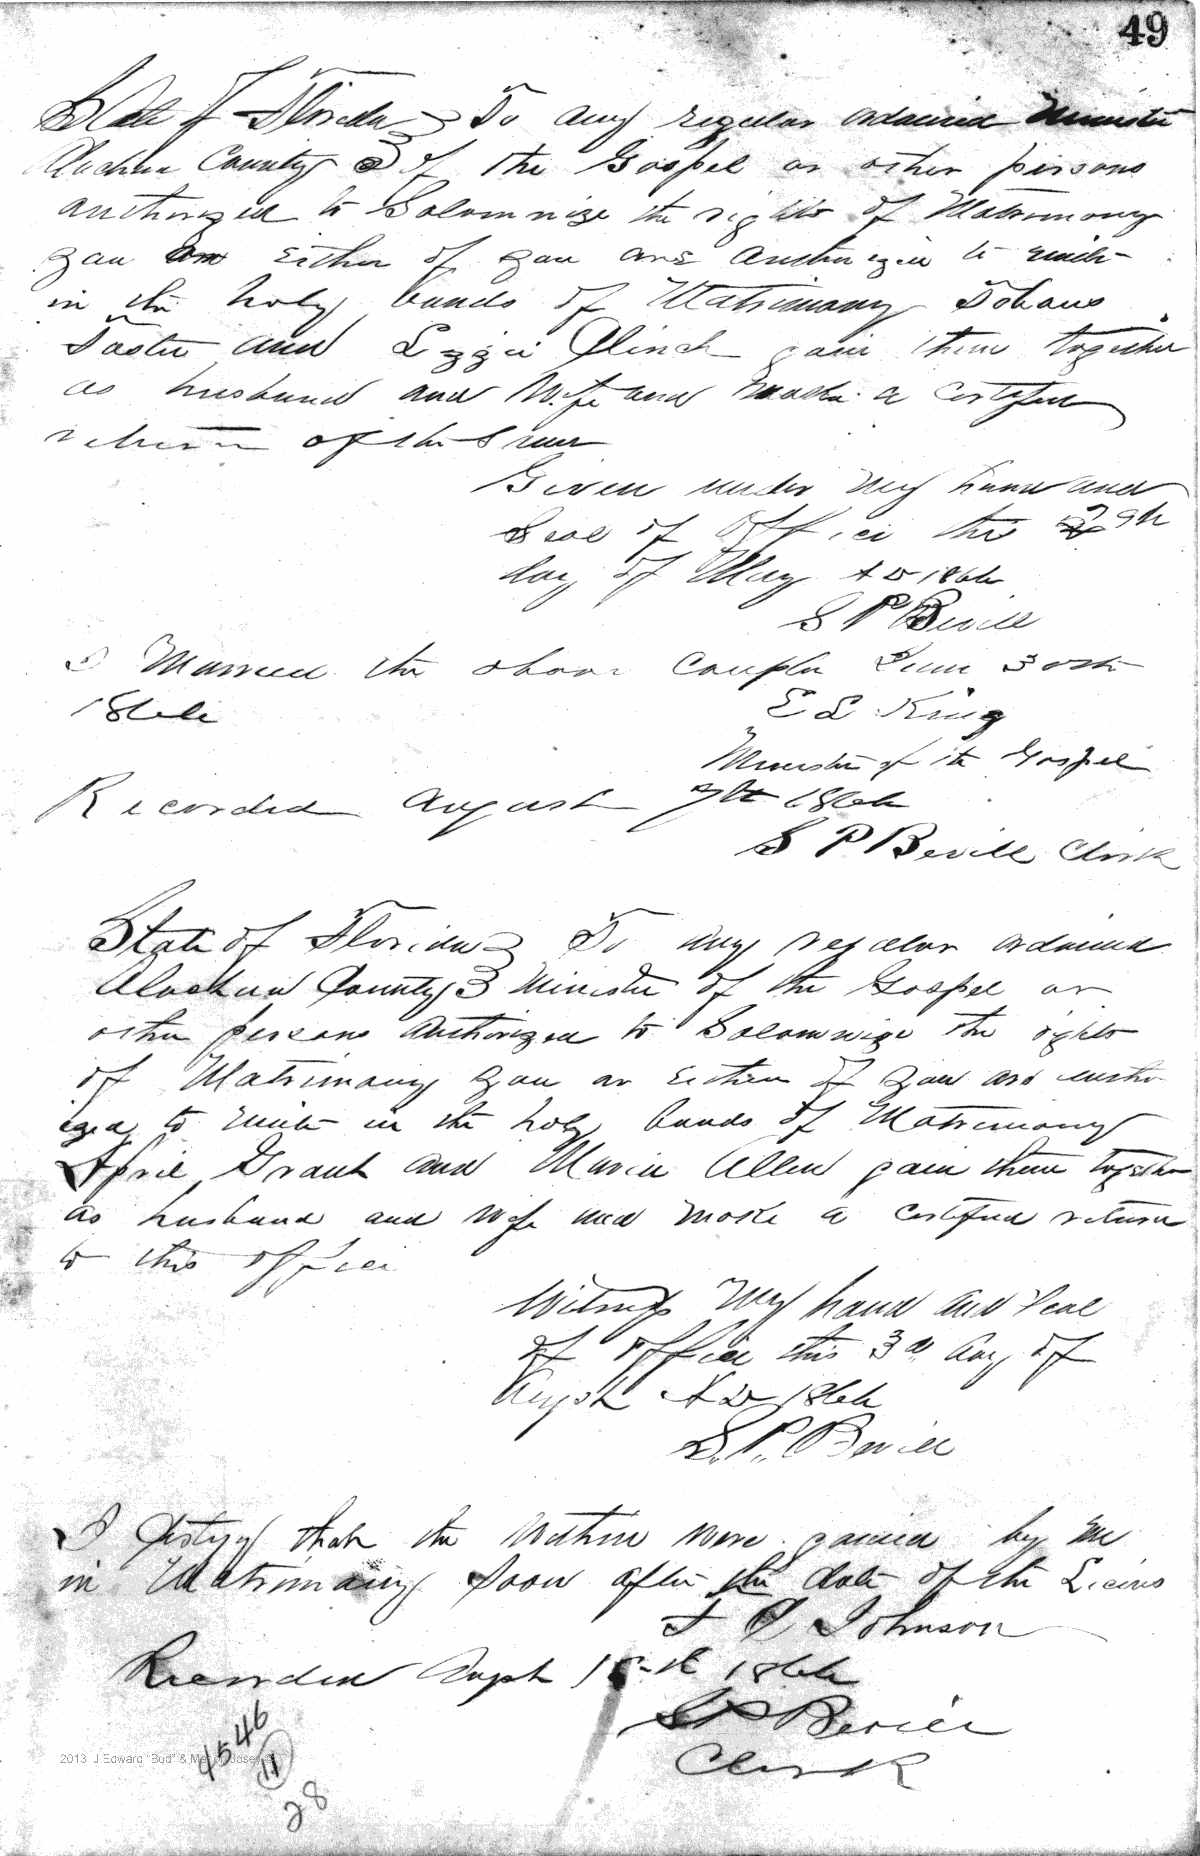 49
State of Florida } To any regular ordained Minister
Alachua County } of the Gospel or other persons
authorized to Solomnize the rights of Matrimony
you or either of you are authorized to unite
in the holy bands of Matrimony
Foster and Lizzie Clinch join them together
as husband and Wife and make a certified
return of the same
Given under my hand and
Seal of Office this 29th
day of May A D 1866
S P Bevill
I Married the above couple June 30th
1866
E L King
Minister of the Gospel
Recorded August 7th 1866
S P Bevill Clerk
State of Florida } To any regular ordained
Alachua County } Minister of the Gospel or
other persons authorized to Solomnize the rights
of Matrimony you or either of you are autho
ized to unite in the holy bands of Matrimony
April Grant and Maria Allen join them together
as husband and wife and make a certified return
to this office
Witness My hand and Seal
of office this 3d day of
Augst A D 1866
S. P. Bevill
I Certify that the within were joined by me
in Matrimony soon after the date of the Licens
Johnson
Recorded Augst 15th 1866
S P Bevill
Clerk
4546
11
28
2013 J Edward "Bud" &